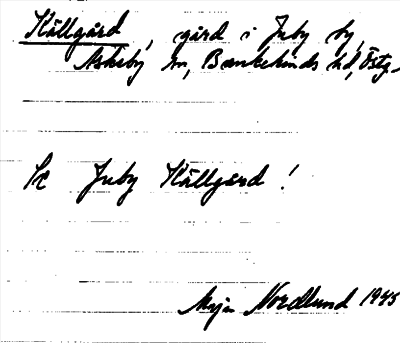 Källgård, gård i Juby by,
Askeby sn, Bankekinds hd, Östg.
Se Juby Källgård!
Maja Nordlund 1945